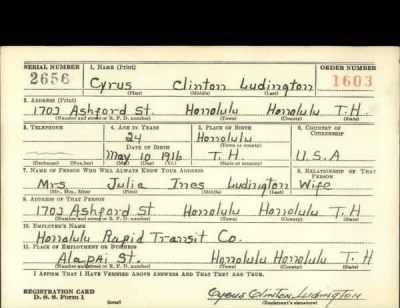 SERIAL NUMBER 1. NAME (Print) ORDER NUMBER
2656 Cyrus Clinton Ludington 1603
(First) (Middle) (Last)
2. ADDRESS (Print)
1703 Ashford St. Honolulu Honolulu T.H.
(Number and street or R. F. D. number) (Town) (County) (State)
3. TELEPHONE 4. AGE IN YEARS 5. PLACE OF BIRTH 6. COUNTRY OF CITIZENSHIP
24 Honolulu
DATE OF BIRTH (Town or county)
May 10 1916 T. H. U.S.A
(Exchange) (No.) (Mo.) (Day) (Yr.) (State or country)
7. NAME OF PERSON WHO WILL ALWAYS KNOW YOUR ADDRESS 8. RELATIONSHIP OF THAT PERSON
Mrs. Julia Ines Ludington Wife
(Mr., Mrs., Miss) (First) (Middle) (Last)
9. ADDRESS OF THAT PERSON
1703 Ashford St. Honolulu Honolulu T. H
(Number and street or R. F. D. number) (Town) (County) (State)
10. EMPLOYER'S NAME
Honolulu Rapid Transit Co.
11. PLACE OF EMPLOYMENT OR BUSINESS
Alapai St. Honolulu Honolulu T. H
(Number and street or R. F. D. number) (Town) (County) (State)
I AFFIRM THAT I HAVE VERIFIED ABOVE ANSWERS AND THAT THEY ARE TRUE.
REGISTRATION CARD
D. S. S. Form 1 (over) Cyrus Clinton Ludington
(Registrant's signature)